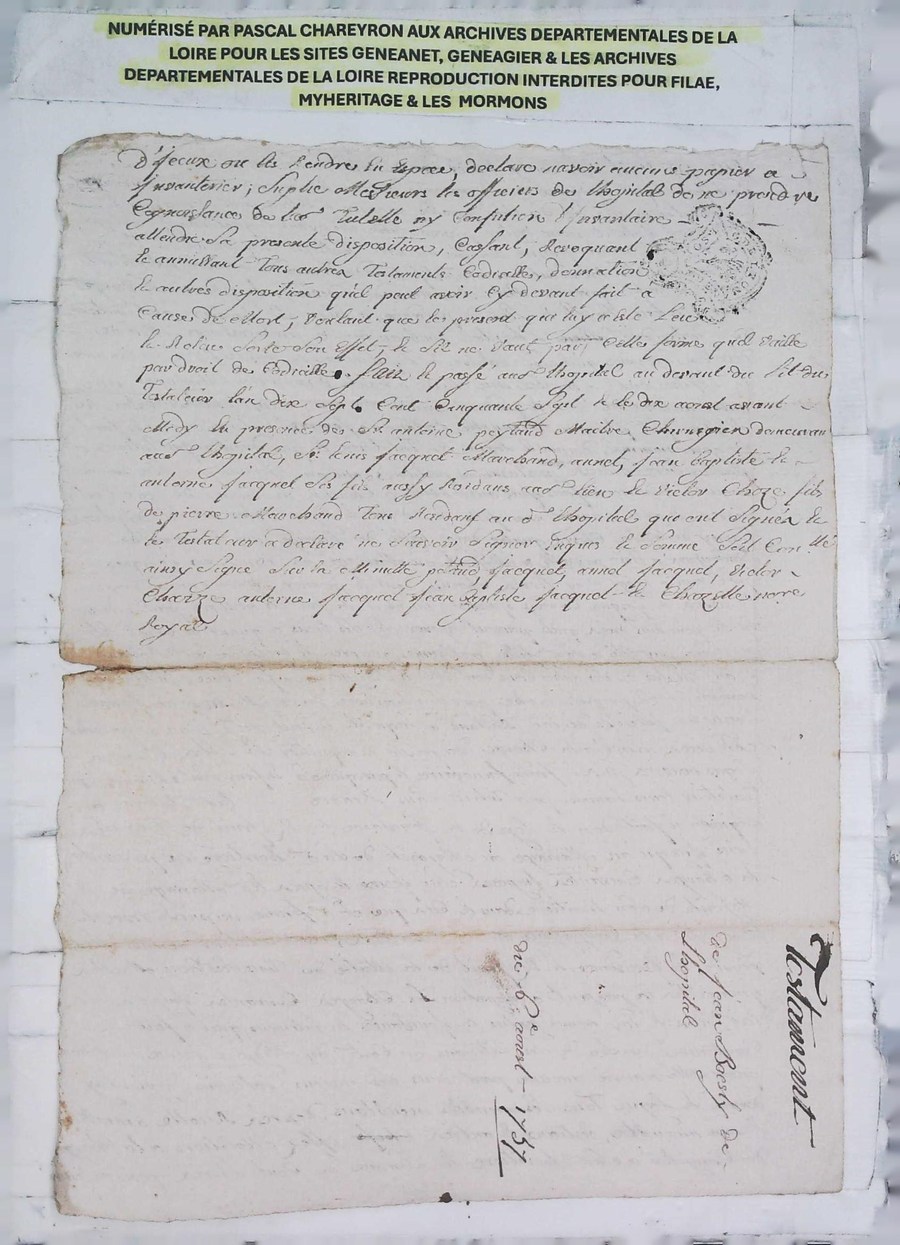 NUMÉRISÉ PAR PASCAL CHAREYRON AUX ARCHIVES DEPARTEMENTALES DE LA
LOIRE POUR LES SITES GENEANET, GENEAGIER & LES ARCHIVES
DEPARTEMENTALES DE LA LOIRE REPRODUCTION INTERDITES POUR FILAE,
MYHERITAGE & LES MORMONS
d'Iceux ou les rendre en espece, declare navoir aucuns papier a
Inventorier; suplie Messieurs les officiers de lhopital de ne prendre
Cognoissance de lad Tutelle ny Inventaire
attendre sa presente disposition, Cassant, Revoquant
Tous autres Testaments Codicille, donnation
& autres disposition quil peut avoir Cy devant fait a
Cause de Mort, voulant que le present qui luy a esté Leu
& Relue Sorte Son Effet, & Sil ne Vaut par Celle forme quil vaille
par droit de Codicille. fait & passé aud lhopital au devant du lit du
Testateur lan dix Sept Cent Cinquante Sept & le dix aoust avant
Midy En presence de Sr antoine peytard Maitre Chirurgien demeurant
aud lhopital, Sr Jacquet Marchand, annet, Jean Baptiste &
antoine Jacquet Ses fils aussy Residans aud lieu & victor Choze fils
de pierre Marchand Tous Residant aud lhopital qui ont Signés &
le Testateur a declaré ne Scavoir Signer Enquis & Somme Soit Contllé
ainsy Signé Sur la Minutte Jacquet, annet Jacquet, victor
antoine Jacquet Jean Baptiste Jacquet & Chazelle nore
Royal
Testament
de Jean de
lhopital
du aoust 1757